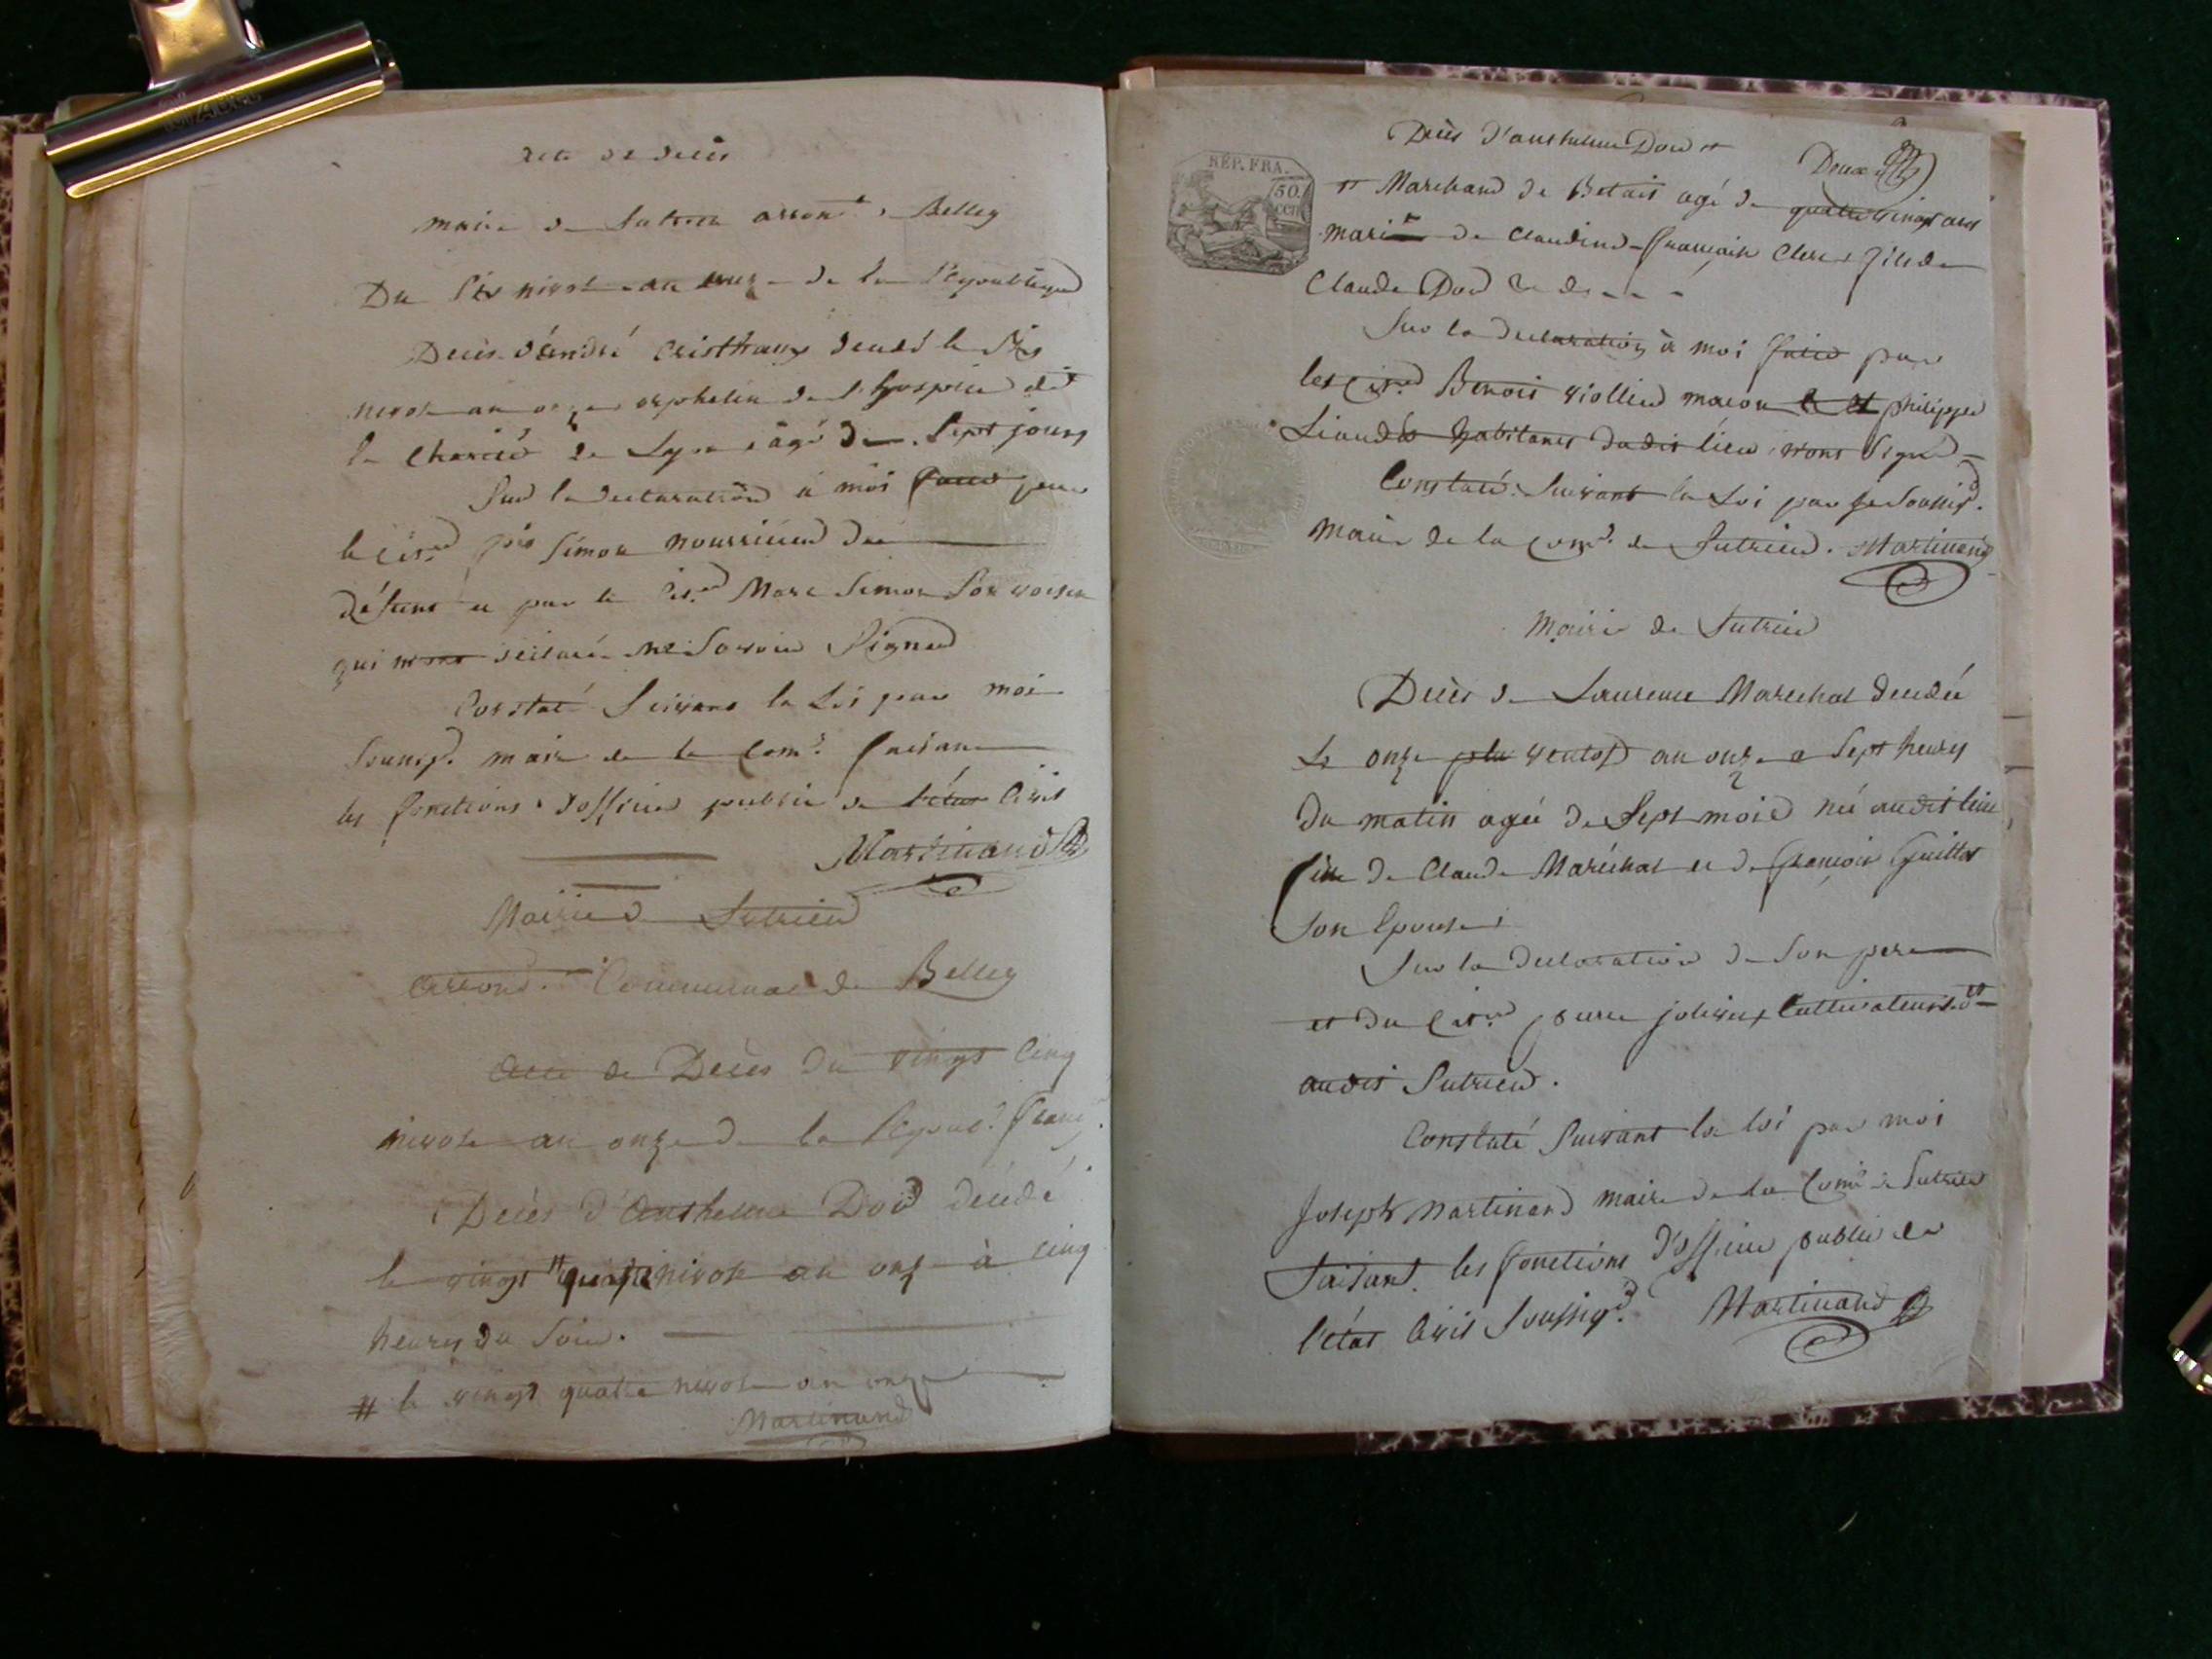 acte de décès
maire de Sutrieu arron.t de Belley
Du Six nivose an onze de la République
Décès d'andré Cristhany décédé le Six
nivose an onze orphelin de l'hospice de
la Charité de Lyon âgé de Sept jours
Sur la declaration à moi faite par
le cit.en Simon nourricier du
défunt et par le cit.en Marc Simon Son voisin
qui déclaré ne Savoir Signer
Constaté Suivant la Loi par moi
Soussig. maire de la Com.e faisant
les fonctions d'officier public de l'état Civil
Martinand
Mairie de Sutrieu
arrond. Communal de Belley
acte de Décès du vingt Cinq
nivose an onze de la Répub. franç.
Décès d'Anthelme Dod décédé
le vingt nivose an onze à cinq
heures du Soir.
# le vingt quatre nivose an onze
Martinand
Décès d'anthelme Dod et
Deux
REP. FRA.
50.
CEN
Marchand de Betait agé de quatre vingt ans
mari de Claudine françoise Clerc fils de
Claude Dod & de - - -
Sur la declaration à moi faite par
les Cit.en Benoit viollier macon et philippe
Liaudé habitants dudit lieu Signé
Constaté Suivant la Loi par je Soussig.d
Maire de la Com.e de Sutrieu. Martinand
Mairie de Sutrieu
Décès de Laurence Marechal decedée
Le onze plu ventose an onze a Sept heures
du matin agée de Sept mois née audit lieu
fille de Claude Maréchal et de françoise Guillot
Son Epouse
Sur la declaration de Son pere
et du Cit.en pierre jolivet Cultivateurs
audit Sutrieu.
Constaté Suivant la loi par moi
Joseph Martinand maire de la Com.e de Sutrieu
faisant les fonctions d'officier public de
l'état Civil Soussig.d Martinand